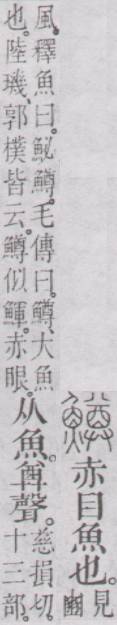 鱒赤目魚也。見
豳
風。釋魚曰。鮅鱒。毛傳曰。鱒、大魚
也。陸璣、郭樸皆云。鱒似鯶。赤眼。
从魚。𢍜聲。慈損切。
十三部。